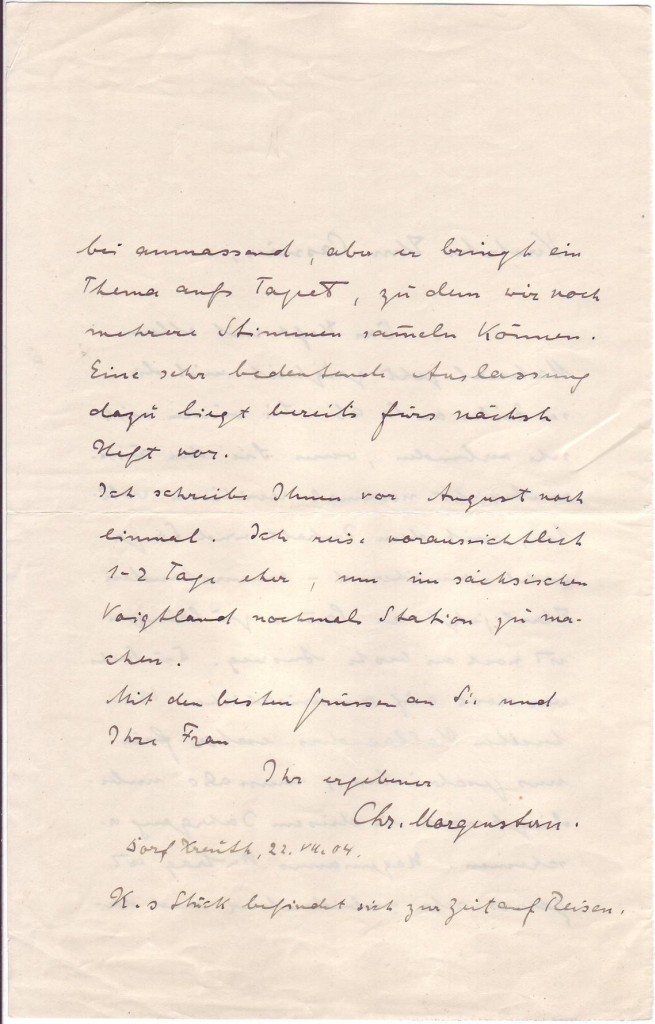 bei anmassend, aber er bringt ein
Thema aufs Tapet, zu dem wir noch
mehrere Stimmen sam̄eln können.
Eine sehr bedeutende Auslassung
dazu liegt bereits fürs nächste
Heft vor.
Ich schreibe Ihnen vor August noch
einmal. Ich reise voraussichtlich
1-2 Tage eher, um im sächsischen
Voigtland nochmals Station zu ma-
chen.
Mit den besten Grüssen an Sie und
Ihre Frau
Ihr ergebener
Chr. Morgenstern.
Dorf Kreuth, 22. VII. 04.
K.s Stück befindet sich zur Zeit auf Reisen.